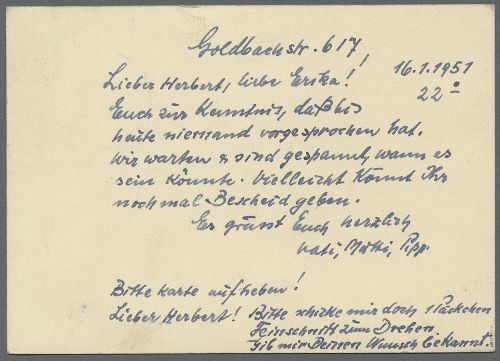 Goldbachstr. 617,
16.1.1951
22°
Lieber Herbert, liebe Erika!
Euch zur Kenntnis, daß bis
heute niemand vorgesprochen hat.
Wir warten & sind gespannt, wann es
sein könnte. Vielleicht könnt Ihr
nochmal Bescheid geben.
Es grüsst Euch herzlich
Vati, Mutti, Pipp.
Bitte Karte aufheben!
Lieber Herbert! Bitte schicke mir doch 1 Päckchen
Feinschnitt zum Drehen.
Gib mir Deinen Wunsch bekannt.